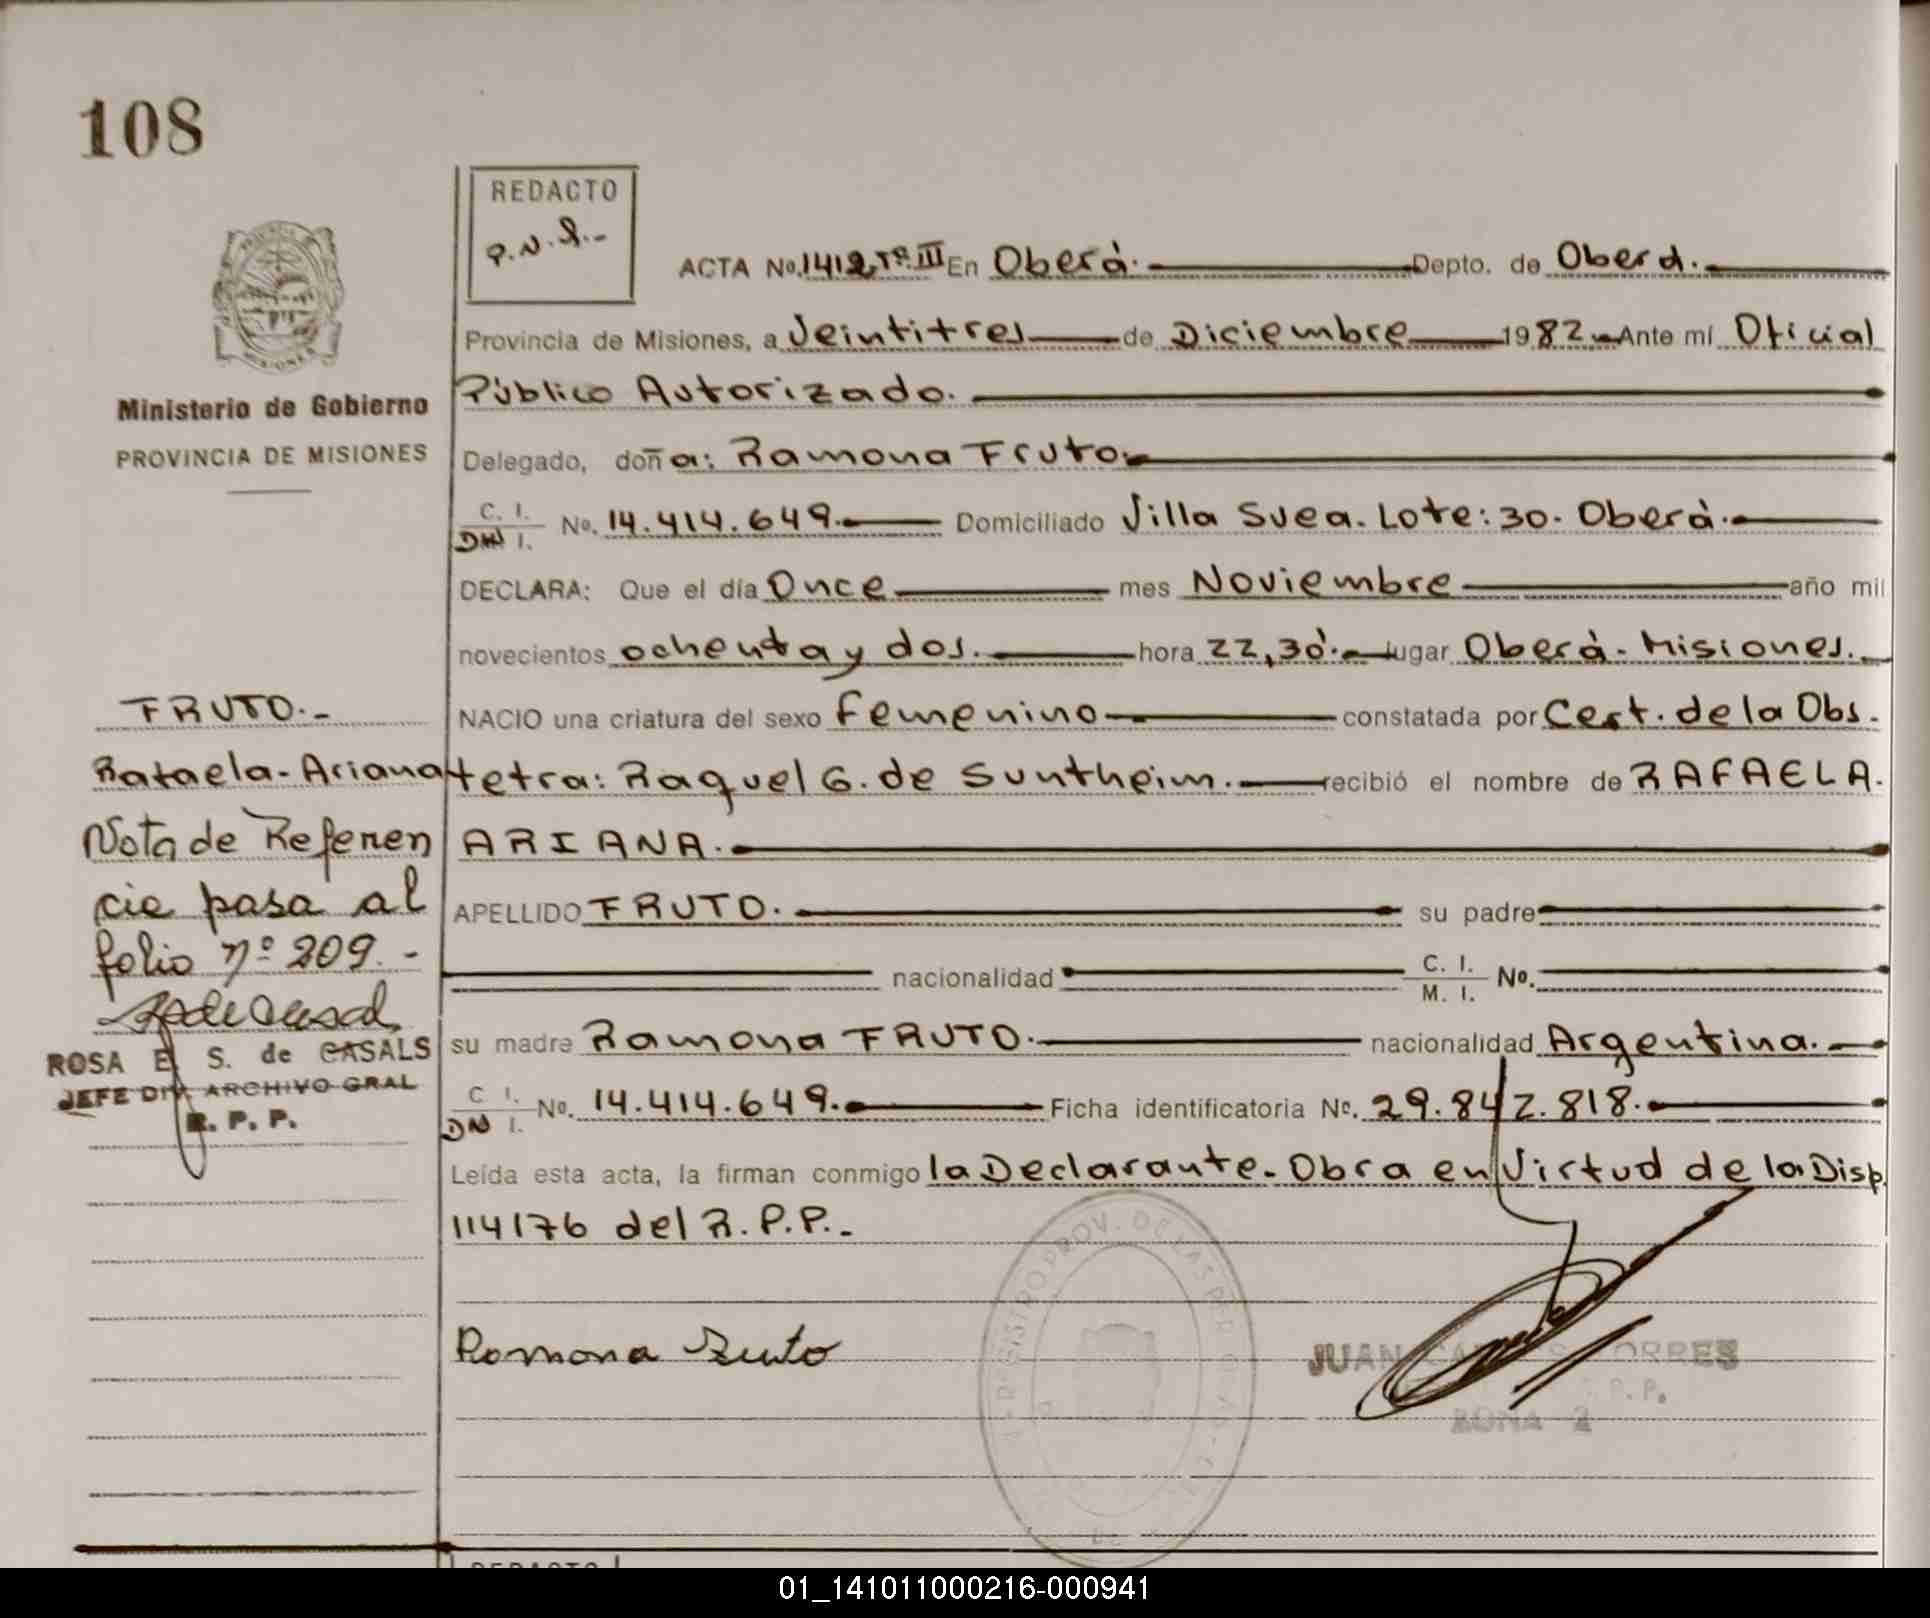 108
REDACTO
P.N.S.-
ACTA No. 1412, Tº. III En Oberá. Depto. de Oberá.
Provincia de Misiones, a Veintitres de Diciembre 1982 Ante mí Oficial
Público Autorizado.
Ministerio de Gobierno
PROVINCIA DE MISIONES
Delegado, doña: Ramona Fruto.
C. I. DN I. No. 14.414.649. Domiciliado Villa Svea. Lote: 30. Oberá.
DECLARA: Que el día Once mes Noviembre año mil
novecientos ochenta y dos. hora 22,30. lugar Oberá. Misiones.
FRUTO.-
NACIO una criatura del sexo femenino constatada por Cert. de la Obs-
Rafaela-Ariana
tetra: Raquel G. de Suntheim. recibió el nombre de RAFAELA.
Nota de Referen
ARIANA.
cia pasa al
APELLIDO FRUTO. su padre
folio nº 209.-
nacionalidad C. I. M. I. No.
ROSA E. S. de CASALS
JEFE DIV. ARCHIVO GRAL
R. P. P.
su madre Ramona FRUTO. nacionalidad Argentina.
C I. DN I. No. 14.414.649. Ficha identificatoria No. 29.842.818.
Leída esta acta, la firman conmigo la Declarante. Obra en Virtud de la Disp.
114176 del R.P.P.-
Ramona Fruto
JUAN CARLOS TORRES
R. P. P.
ZONA 2
REGISTRO PROV. DE LAS PERSONAS
REDACTO
01_141011000216-000941